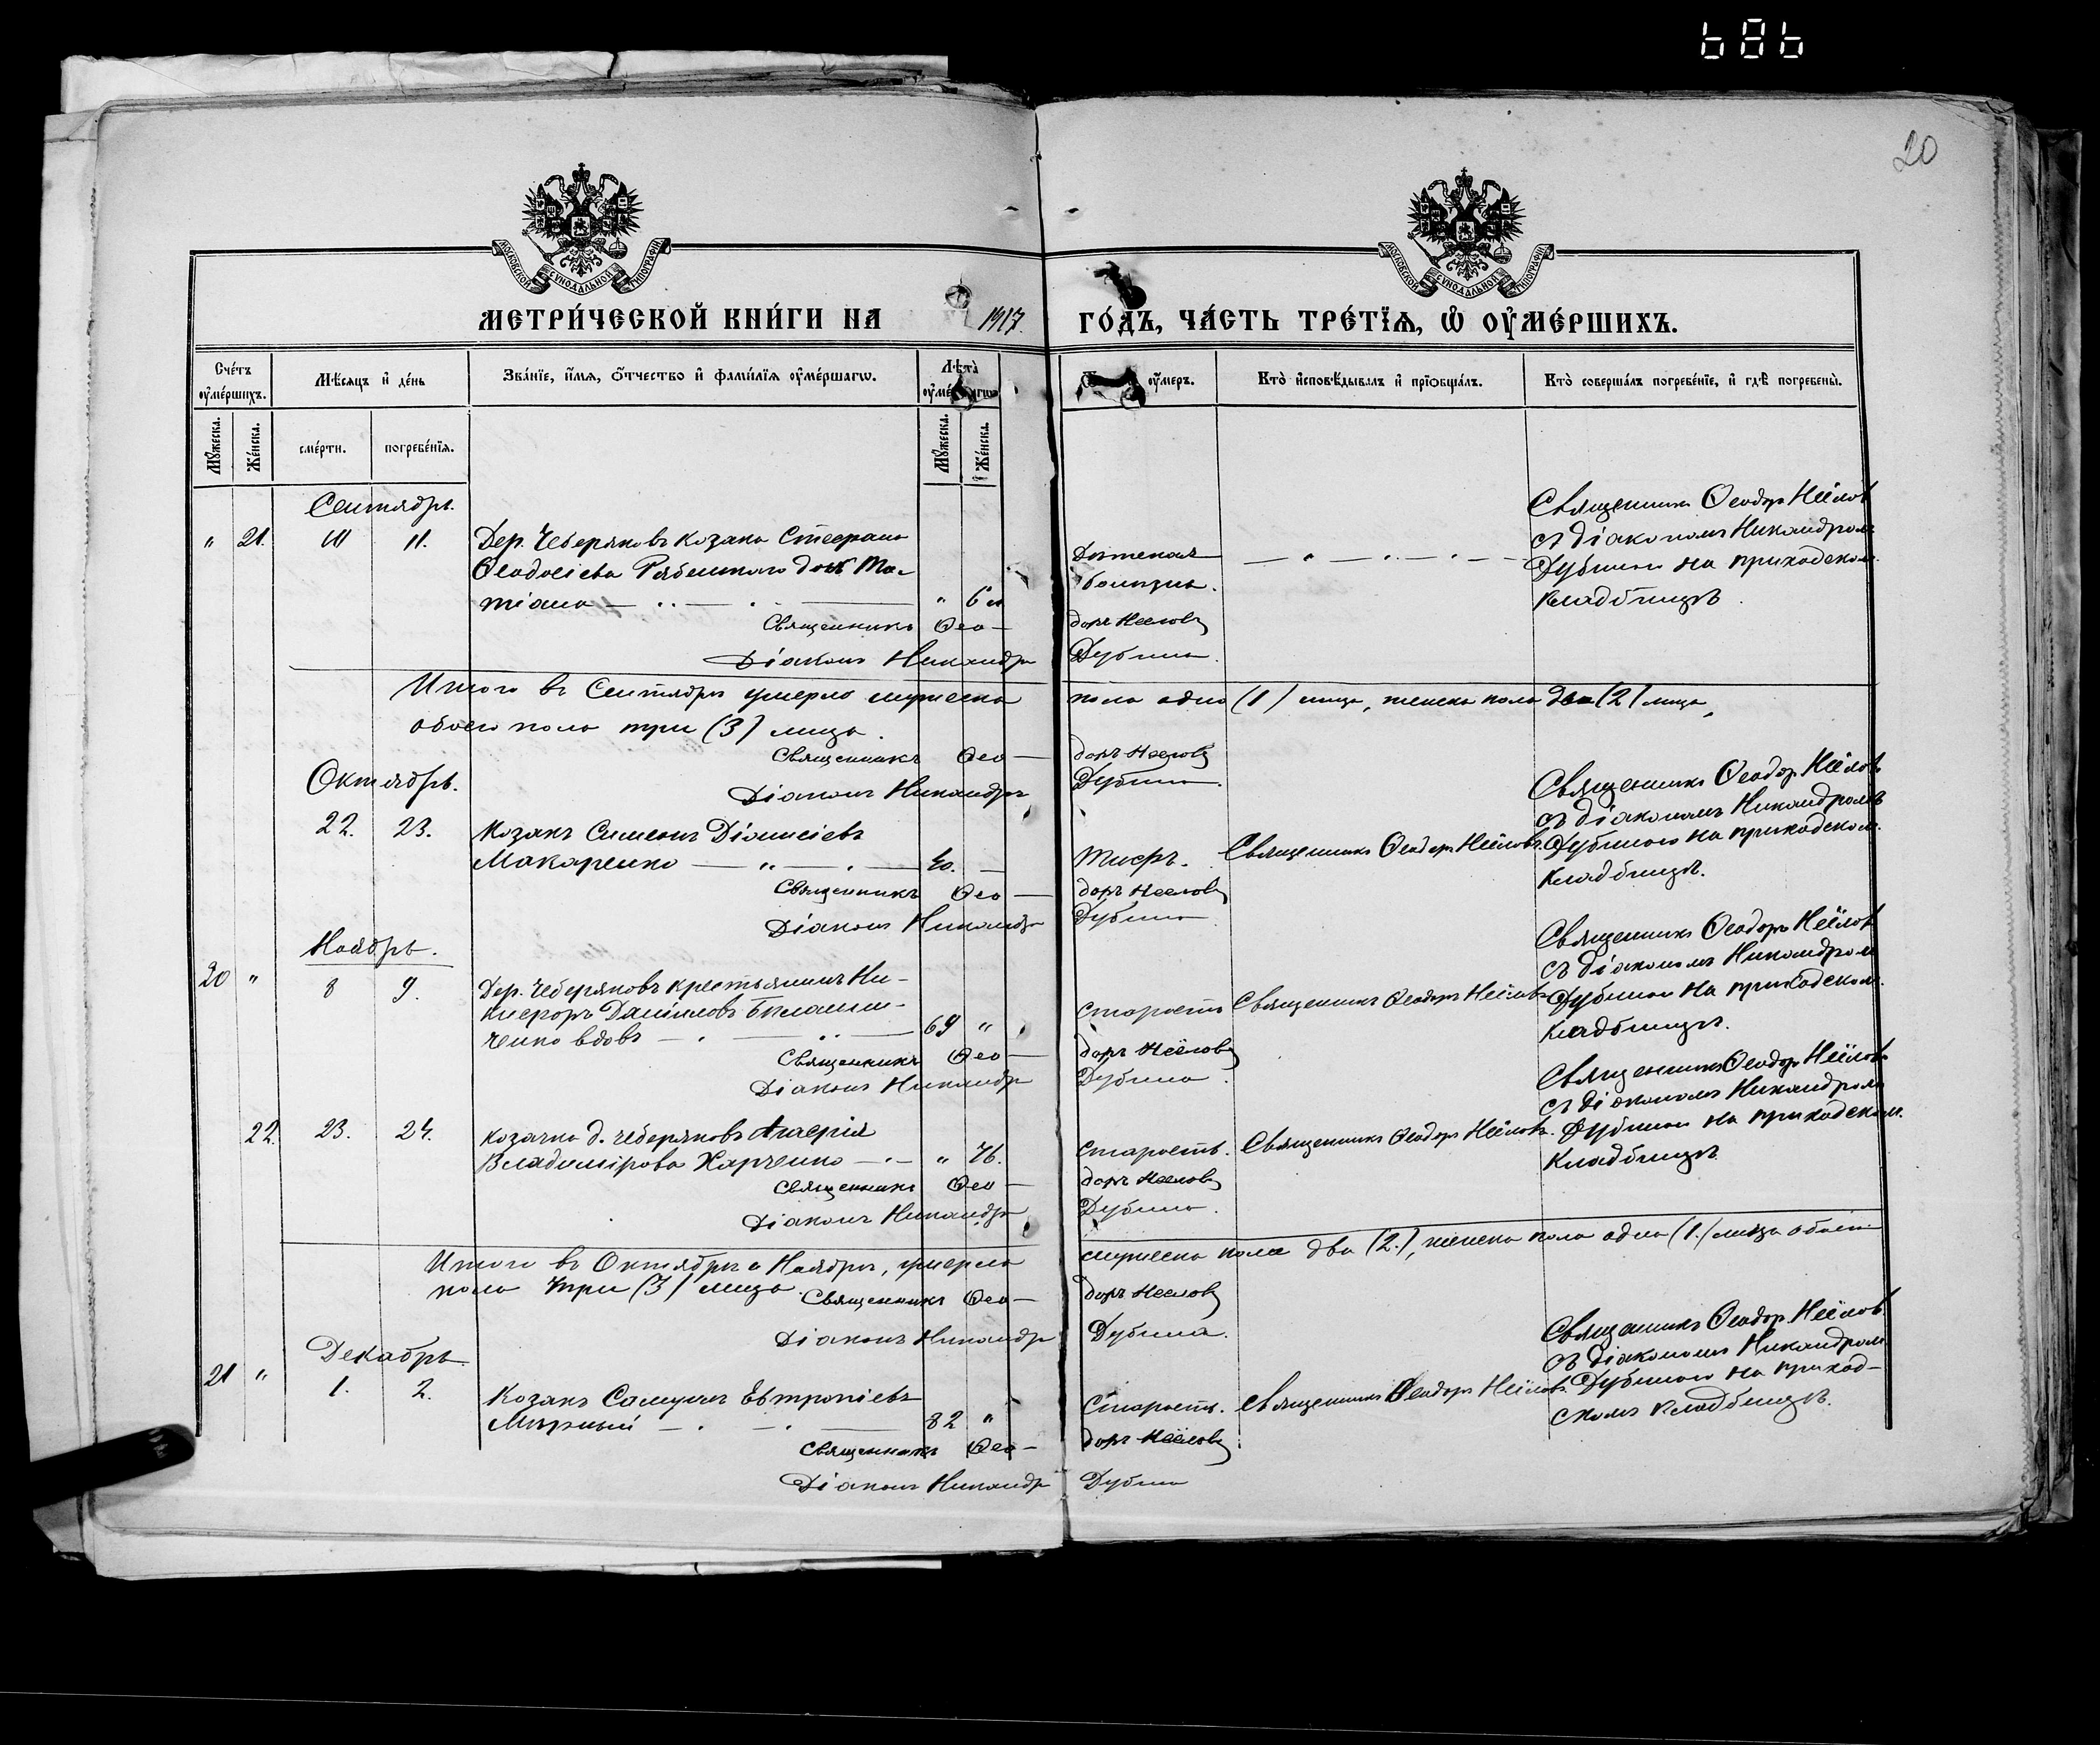 686
20
МОСКОВСКОЙ СѴНОДАЛЬНОЙ ТИПОГРАФІИ
МОСКОВСКОЙ СѴНОДАЛЬНОЙ ТИПОГРАФІИ
МЕТРИ́ЧЕСКОЙ КНИ́ГИ НА 1917. ГО́ДЪ, ЧА́СТЬ ТРЕ́ТЇѦ, Ѡ҆ ОУ҆МЕ́РШИХЪ.
Сче́тъ оу҆ме́ршихъ.
Мѣ́сяцъ и҆ де́нь
Зва́нїе, и҆́мѧ, ѻ҆́тчество и҆ фами́лїѧ оу҆ме́ршагѡ.
Лѣ́та
оу҆́меръ.
Кто̀ и҆сповѣ́дывалъ и҆ прїѡбща́лъ.
Кто̀ соверша́лъ погребе́нїе, и҆ гдѣ̀ погребены̀.
Мꙋ́жеска.
Же́нска.
сме́рти.
погребе́нїѧ.
Мꙋ́жеска.
Же́нска.
Сентябрь.
" 21. 10 11. Дер. Чеберяковъ козака Стефана
Ѳеодосіева Рябенькаго дочь Та-
тіана " 6 м
Дѣтская
болѣзнь.
Священникъ Ѳеодоръ Неёлов
съ діакономъ Никандромъ
Дубиною на приходском.
кладбищѣ.
Священникъ Ѳео-доръ Неёловъ
Діаконъ Никандръ Дубина.
Итого въ Сентябрѣ умерло мужеска пола одно (1) лицо, женска пола два (2) лица,
обоего пола три (3) лица.
Священникъ Ѳео-доръ Неёловъ
Діаконъ Никандръ Дубина.
Октябрь.
22. 23. Козакъ Симеонъ Діонисіевъ
Макаренко 40. —
Тифъ.
Священникъ Ѳеодоръ Неёловъ.
Священникъ Ѳеодор Неёловъ
съ діакономъ Никандромъ
Дубиною на приходском.
кладбищѣ.
Священникъ Ѳео-доръ Неёловъ
Діаконъ Никандръ Дубина
Ноябрь.
20 " 8 9. Дер. Чеберяковъ крестьянинъ Ни-
кифоръ Даниловъ
ченко вдовъ 69 "
Старость
Священникъ Ѳеодоръ Неёловъ
Священникъ Ѳеодоръ Неёлов
съ діакономъ Никандром
Дубиною на приходском.
кладбищѣ.
Священникъ Ѳео-доръ Неёловъ
Діаконъ Никандръ Дубина.
22. 23. 24. Козачка д. Чеберяковъ Агафія
Владимірова Харченко " 76.
Старость.
Священникъ Ѳеодоръ Неёловъ.
Священникъ Ѳеодор Неёловъ
съ діакономъ Никандромъ
Дубиною на приходском.
кладбищѣ
Священникъ Ѳео-доръ Неёловъ
Діаконъ Никандръ Дубина.
Итого въ Октябрѣ и Ноябрѣ, умерло мужеска пола два (2.), женска пола одно (1.) лицо обоего
пола три (3) лица.
Священникъ Ѳео-доръ Неёловъ
Діаконъ Никандръ Дубина.
Декабрь.
21 " 1. 2. Козакъ Самуилъ Евтропіевъ
Мирный 82 "
Старость.
Священникъ Ѳеодоръ Неёловъ.
Священникъ Ѳеодор Неёлов
съ діакономъ Никандром
Дубиною на приход-
скомъ кладбищѣ.
Священникъ Ѳео-доръ Неёловъ
Діаконъ Никандръ Дубина